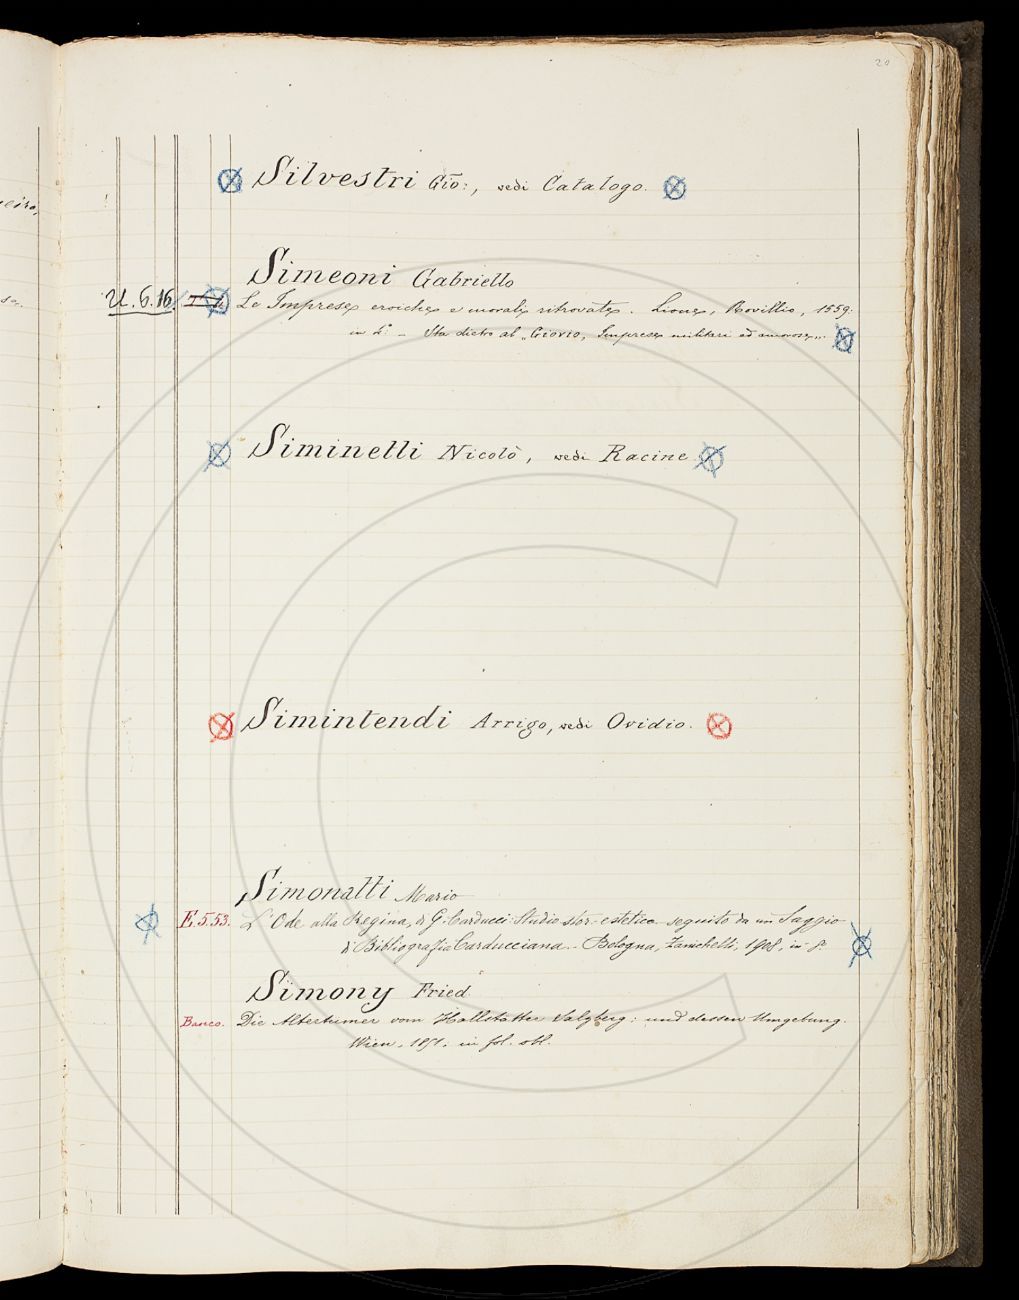 20
Silvestri Gio:, vedi Catalogo.
Simeoni Gabriello
U.6.16. Le Imprese eroiche e morali ritrovate. Lione, Rovillio, 1559.
in 4.° - Sta dietro al „Giovio, Imprese militari ed amorose„.
Siminelli Nicolò, vedi Racine
Simintendi Arrigo, vedi Ovidio.
Simonatti Mario
E.5.53. L'Ode alla Regina, di G. Carducci. Studio stor. estetico seguito da un Saggio
di Bibliografia Carducciana. - Bologna, Zanichelli, 1908, in 8.°
Simony Fried.
Banco. Die Alterthümer vom Hallstätter Salzberg: und dessen Umgebung.
Wien, 1851; in fol. obl.